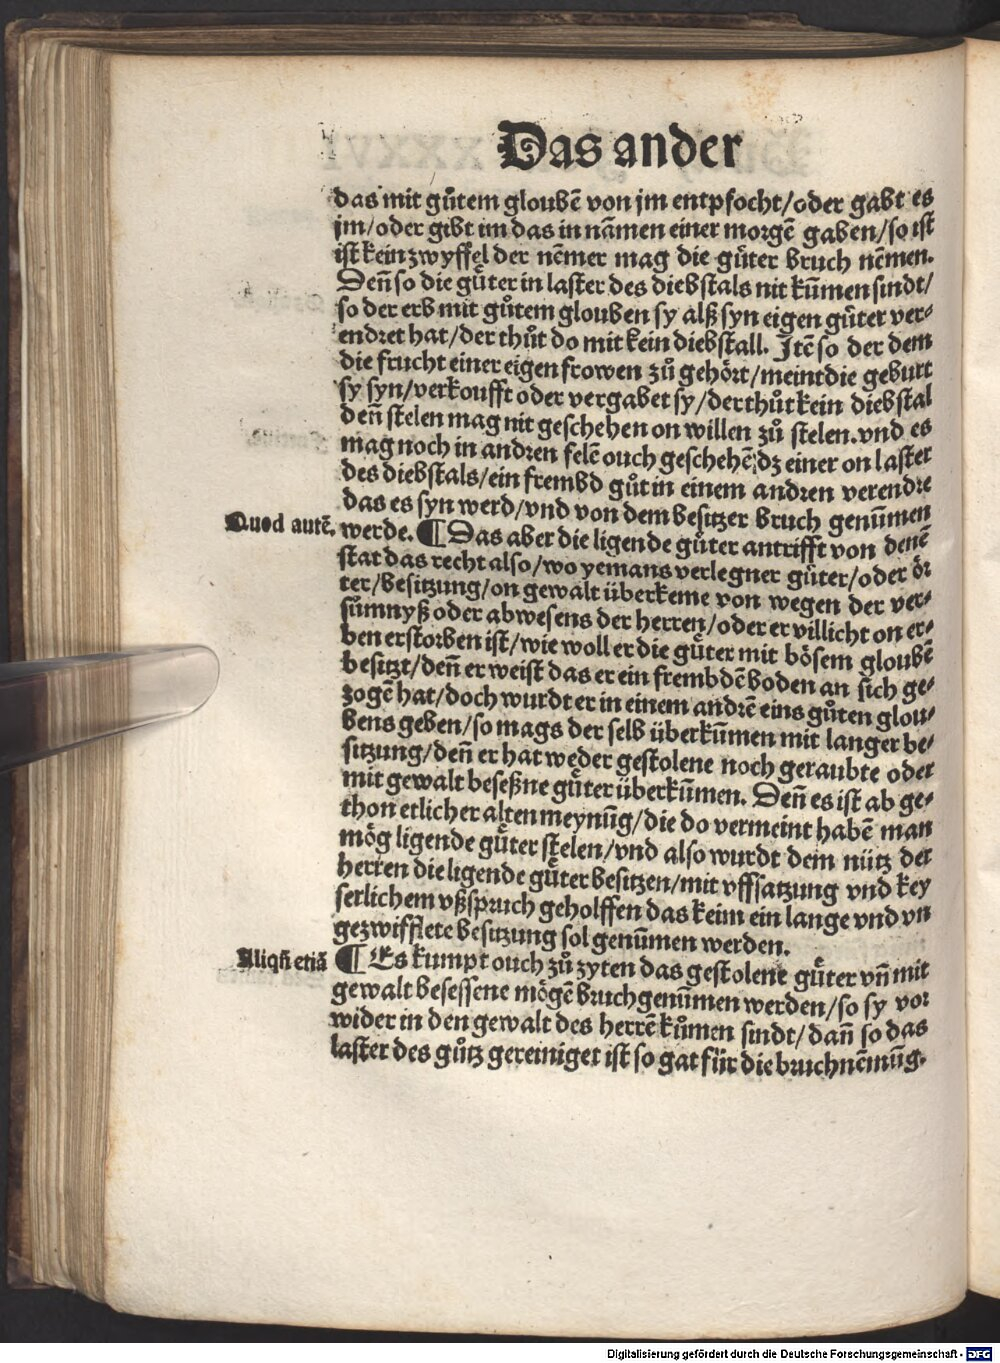 Das ander
das mit gůtem gloubē von jm entpfocht/oder gabt es
jm/oder gibt im das in nāmen einer morgē gaben/so ist
ist kein zwyffel der nēmer mag die gůter bruch nēmen.
Deñ so die gůter in laster des diebstals nit kūmen sindt/
so der erb mit gůtem glouben sy alß syn eigen gůter ver⸗
endret hat/der thůt do mit kein diebstall. Jtē so der dem
die frucht einer eigen frowen zů gehört/meint die geburt
sy syn/verkoufft oder vergabet sy/der thůt kein diebstal
deñ stelen mag nit geschehen on willen zů stelen.vnd es
mag noch in andren felē ouch geschehē dz einer on laster
des diebstals/ein frembd gůt in einem andren verendre
das es syn werd/vnd von dem besitzer bruch genūmen
Quod autē. werde. ¶ Das aber die ligende gůter antrifft von denē
stat das recht also/wo yemans verlegner gůter/oder ör
ter/besitzung/on gewalt überkeme von wegen der ver⸗
sůmnyß oder abwesens der herren/oder er villicht on er⸗
ben erstorben ist/wie woll er die gůter mit bösem gloubē
besitzt/deñ er weist das er ein frembdē boden an sich ge⸗
zogē hat/doch wurdt er in einem andrē eins gůten glou⸗
bens geben/so mags der selb überkūmen mit langer be⸗
sitzung/deñ er hat weder gestolene noch geraubte oder
mit gewalt beseßne gůter überkūmen. Deñ es ist ab ge⸗
thon etlicher alten meynūg/die do vermeint habē man
mög ligende gůter stelen/vnd also wurdt dem nütz der
herren die ligende gůter besitzen/mit vffsatzung vnd key
serlichem vßspruch geholffen das keim ein lange vnd vn
gezwifflete besitzung sol genūmen werden.
Aliqñ etiā ¶ Es kumpt ouch zů zyten das gestolene gůter vñ mit
gewalt besessene mögē bruch genūmen werden/so sy vor
wider in den gewalt des herrē kůmen sindt/dañ so das
laster des gůtz gereiniget ist so gat für die bruchnēmūg.
Digitalisierung gefördert durch die Deutsche Forschungsgemeinschaft - DFG